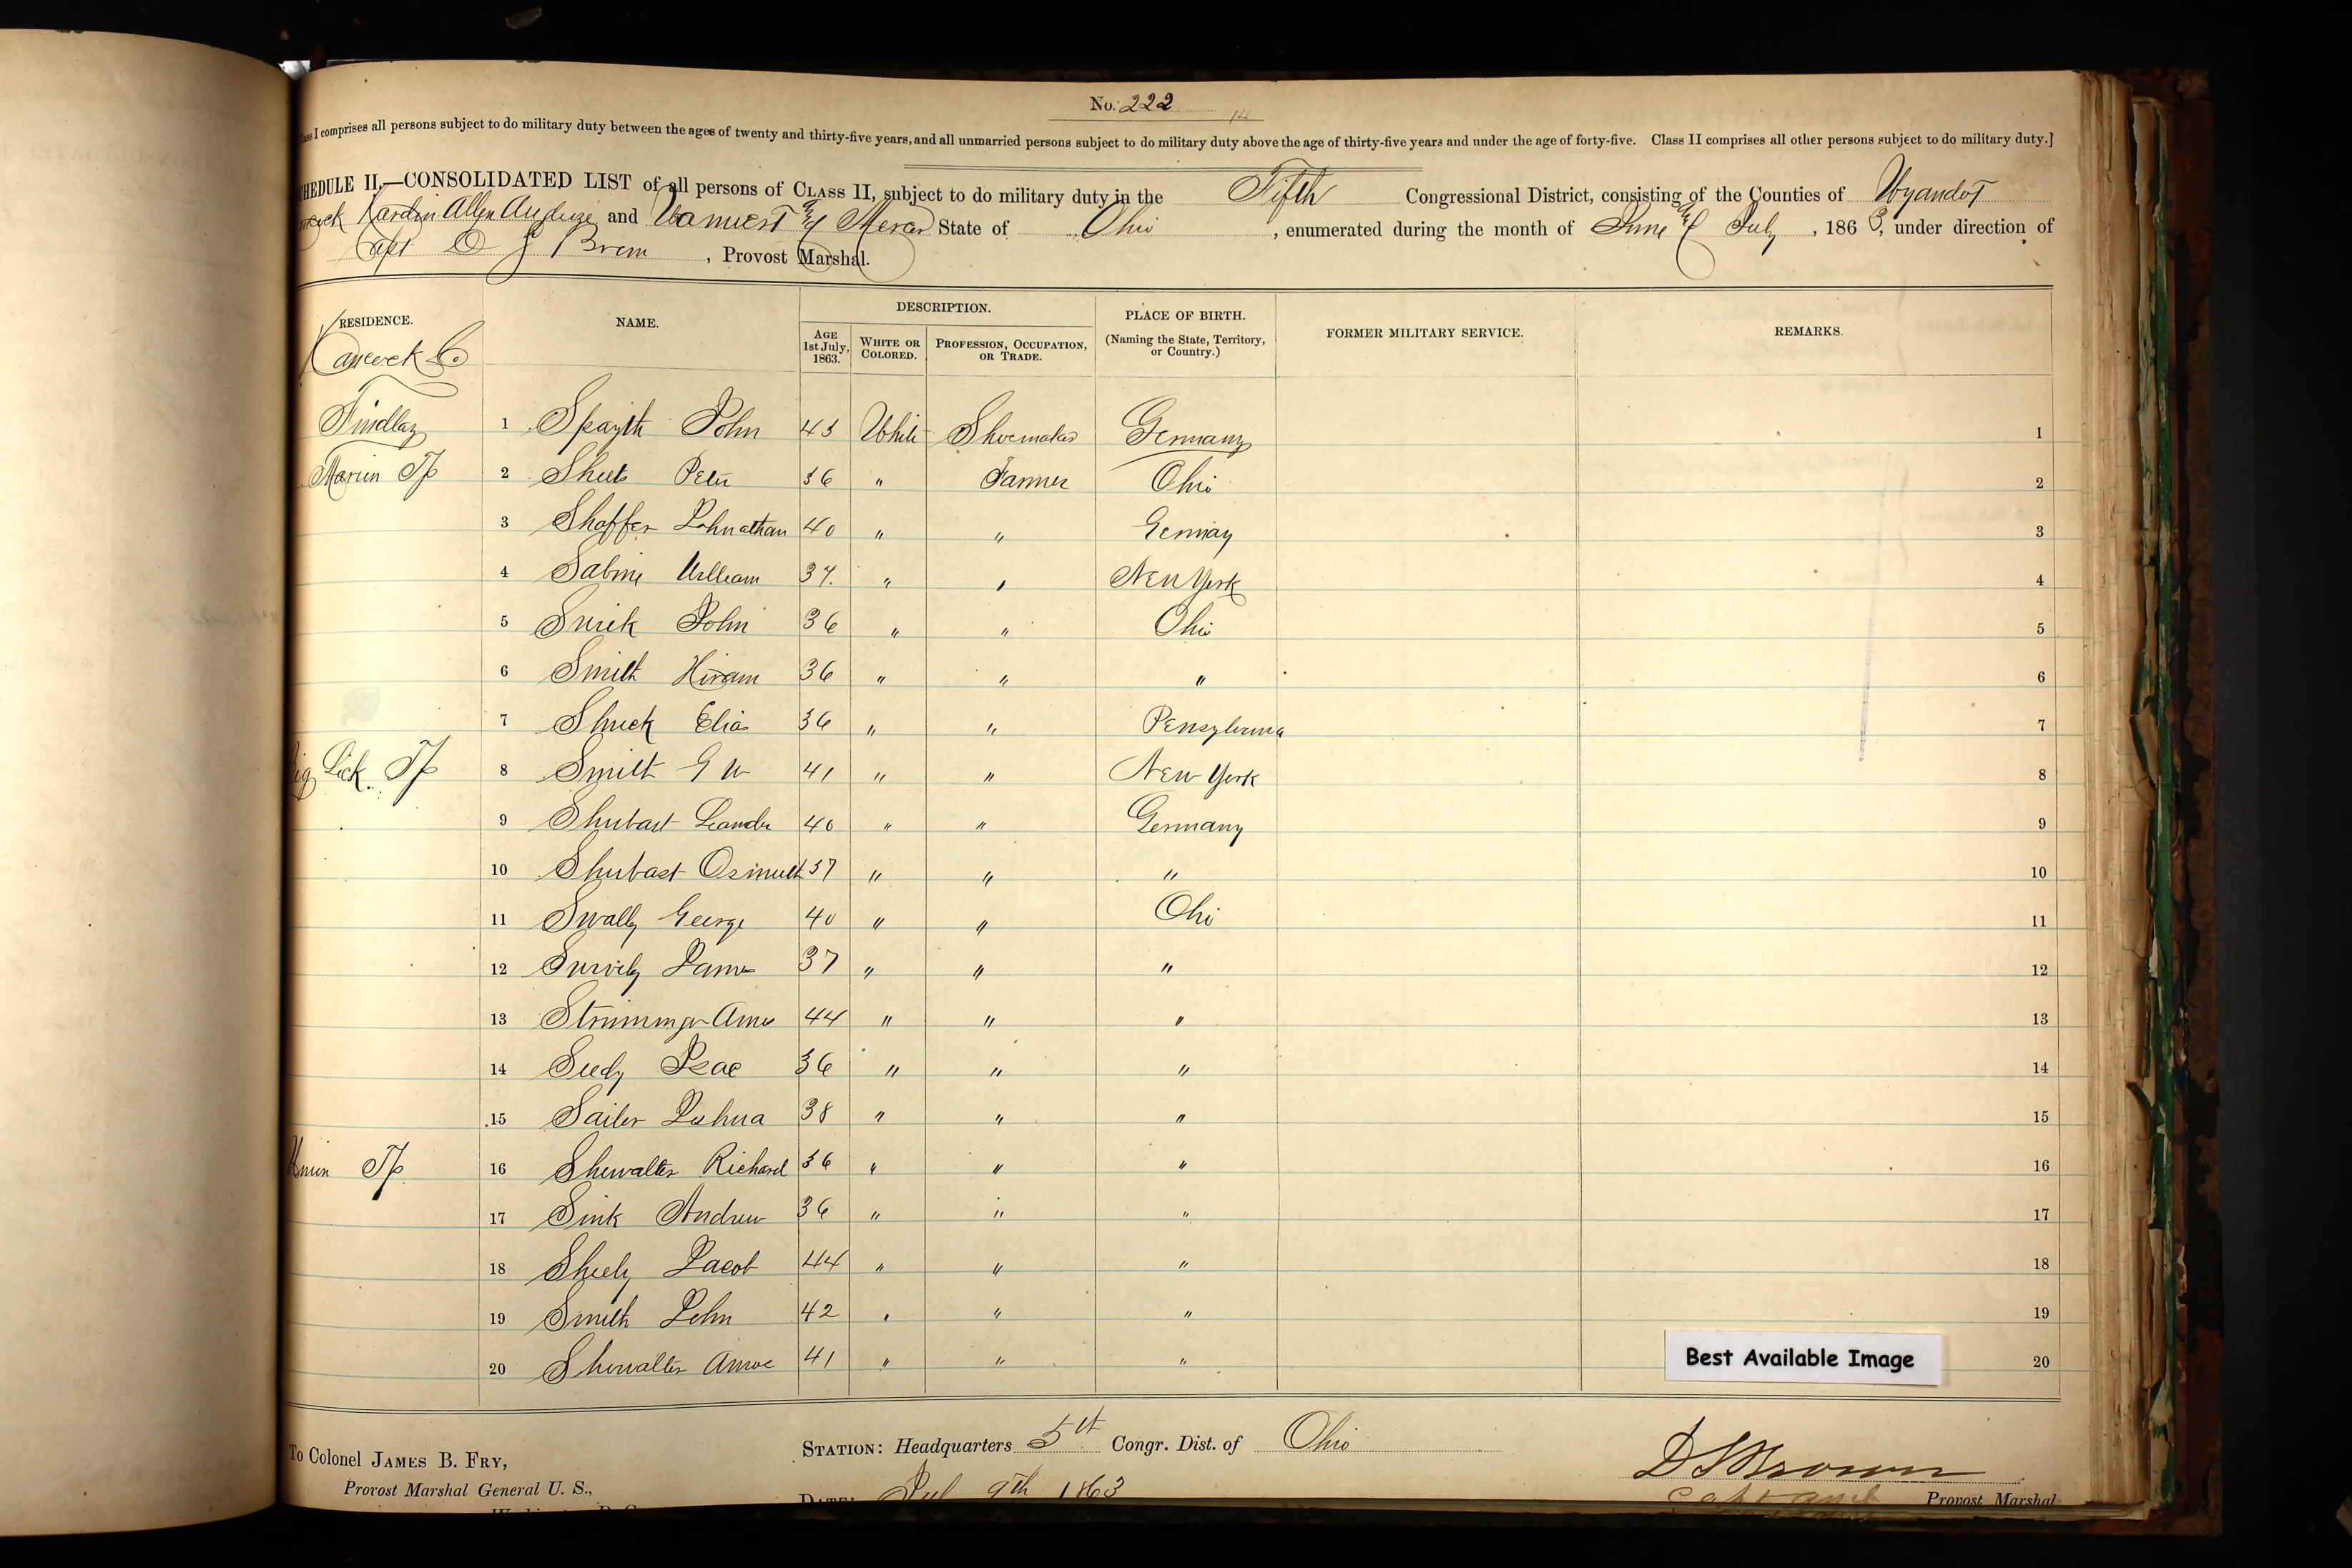 No. 222
Class I comprises all persons subject to do military duty between the ages of twenty and thirty-five years, and all unmarried persons subject to do military duty above the age of thirty-five years and under the age of forty-five. Class II comprises all other persons subject to do military duty.]
HEDULE II.—CONSOLIDATED LIST of all persons of CLASS II, subject to do military duty in the Fifth Congressional District, consisting of the Counties of Wyandot
Hardin Allen Auglaize and Vanwert & Mercer State of Ohio, enumerated during the month of June & July, 1863, under direction of
Capt , Provost Marshal.
RESIDENCE. NAME. DESCRIPTION. PLACE OF BIRTH. FORMER MILITARY SERVICE. REMARKS.
AGE 1st July, 1863. WHITE OR COLORED. PROFESSION, OCCUPATION, OR TRADE. (Naming the State, Territory, or Country.)
Hancock Co
Findlay 1 Spayth John 43 White Shoemaker Germany 1
Marion Tp 2 Sheets Peter 36 " Farmer Ohio 2
3 Shoffer Johnathan 40 " " Germay 3
4 Sabine William 37. " " New York 4
5 John 36 " " Ohio 5
6 Smith Hiram 36 " " " 6
7 Shuck Elias 36 " " Pensylvania 7
Big Lick Tp 8 Smith G W 41 " " New York 8
9 Shubast Leander 40 " " Germany 9
10 Shubast 37 " " " 10
11 Swally George 40 " " Ohio 11
12 James 37 " " " 12
13 Amos 44 " " " 13
14 Isac 36 " " " 14
15 Sailer Joshua 38 " " " 15
Union Tp 16 Shewalter Richard 36 " " " 16
17 Sink Andrew 36 " " " 17
18 Sheely Jacob 44 " " " 18
19 Smith John 42 " " " 19
20 Shewalter Amos 41 " " " 20
Best Available Image
To Colonel JAMES B. FRY,
Provost Marshal General U. S.,
STATION: Headquarters 5th Congr. Dist. of Ohio
DATE: Jul 9th 1863
Capt and Provost Marshal